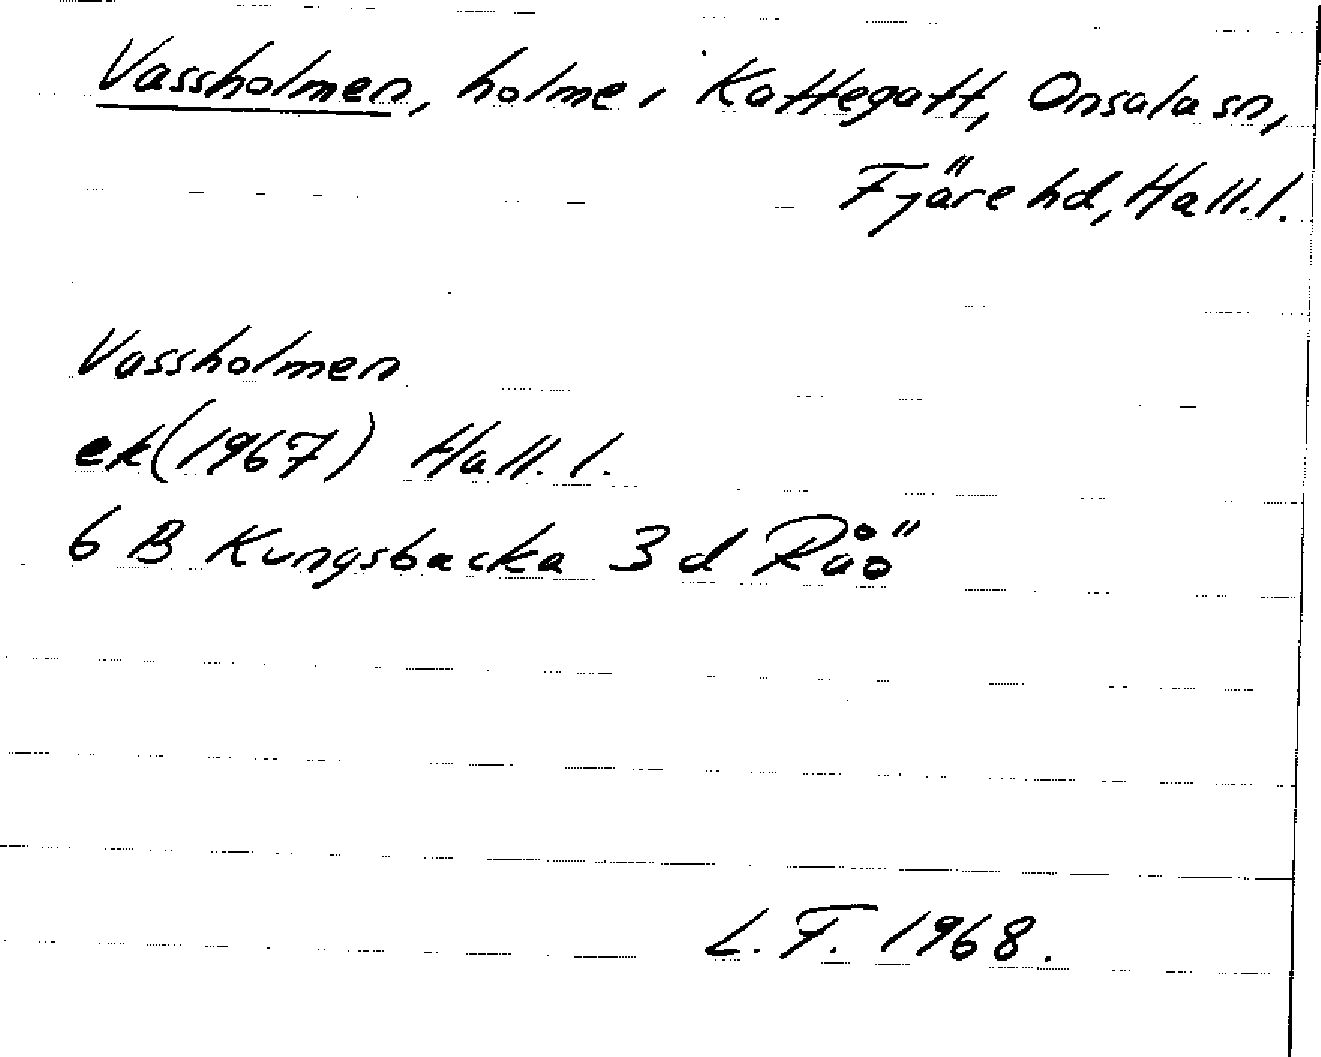 Vassholmen, holme i Kattegatt, Onsala sn,
Fjäre hd, Hall. l.
Vassholmen
ek (1967) Hall. l.
6 B Kungsbacka 3 d Råö
L. F. 1968.